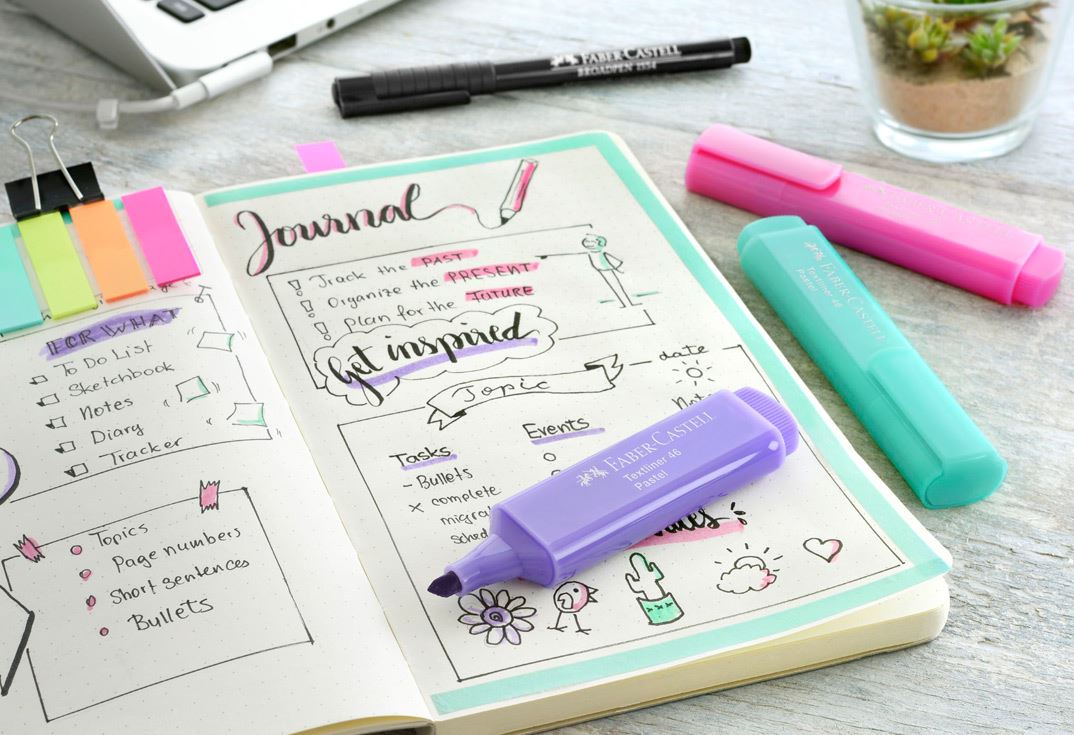 FOR WHAT
To Do List
Sketchbook
Notes
Diary
Tracker
Topics
Page numbers
Short sentences
Bullets
Journal
Track the PAST
Organize the PRESENT
Plan for the FUTURE
Get inspired
Topic
date
Tasks
- Bullets
x complete
Events
FABER-CASTELL
BROADPEN 1554
FABER-CASTELL
Textliner 46
Pastel
FABER-CASTELL
Textliner 46
Pastel
FABER-CASTELL